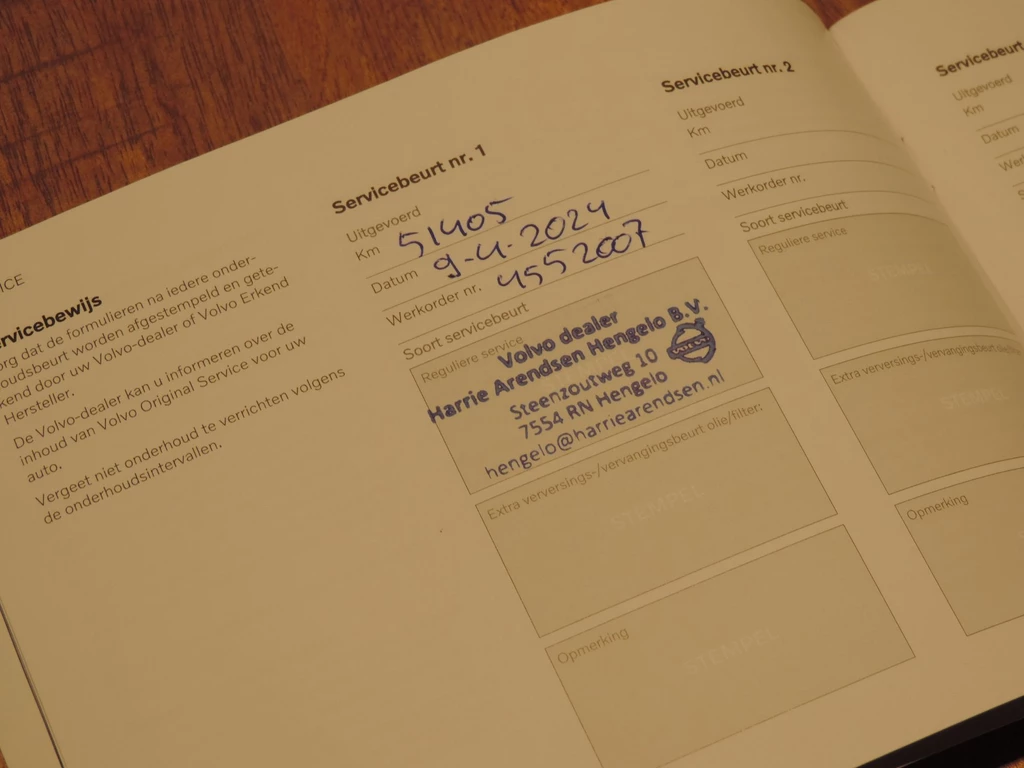 ICE
rvicebewijs
org dat de formulieren na iedere onder-
oudsbeurt worden afgestempeld en gete-
kend door uw Volvo-dealer of Volvo Erkend
Hersteller.
De Volvo-dealer kan u informeren over de
inhoud van Volvo Original Service voor uw
auto.
Vergeet niet onderhoud te verrichten volgens
de onderhoudsintervallen.
Servicebeurt nr. 1
Uitgevoerd
Km 51405
Datum 9-4-2024
Werkorder nr. 4552007
Soort servicebeurt
Reguliere service
Volvo dealer
Harrie Arendsen Hengelo B.V.
Steenzoutweg 10
7554 RN Hengelo
hengelo@harriearendsen.nl
VOLVO
Extra verversings-/vervangingsbeurt olie/filter:
STEMPEL
Opmerking
STEMPEL
Servicebeurt nr. 2
Uitgevoerd
Km
Datum
Werkorder nr.
Soort servicebeurt
Reguliere service
STEMPEL
Extra verversings-/vervangingsbeurt
STEMPEL
Opmerking
Servicebeurt
Uitgevoerd
Km
Datum
Wer